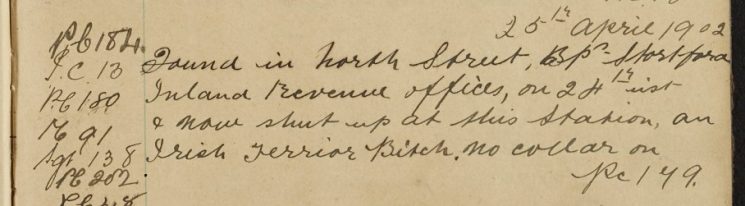 25th April 1902
PC 184.
P.C. 13 Found in North Street, Bp's Stortford
PC 180 Inland Revenue offices, on 24th inst
PC 91 & now shut up at this Station, an
Sgt 138 Irish Terrior Bitch. No collar on
PC 202. Pc 149.